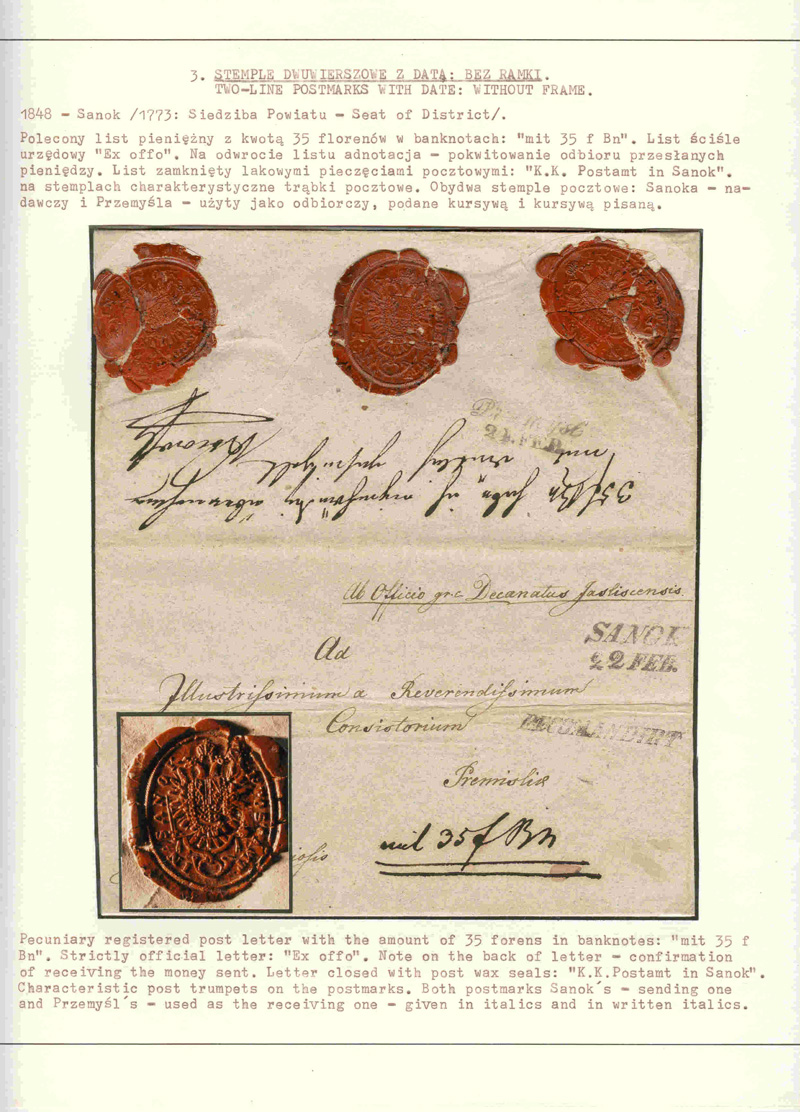 3. STEMPLE DWUWIERSZOWE Z DATĄ: BEZ RAMKI.
TWO-LINE POSTMARKS WITH DATE: WITHOUT FRAME.
1848 - Sanok /1773: Siedziba Powiatu - Seat of District/.
Polecony list pieniężny z kwotą 35 florenów w banknotach: "mit 35 f Bn". List ściśle
urzędowy "Ex offo". Na odwrocie listu adnotacja - pokwitowanie odbioru przesłanych
pieniędzy. List zamknięty lakowymi pieczęciami pocztowymi: "K.K. Postamt in Sanok".
na stemplach charakterystyczne trąbki pocztowe. Obydwa stemple pocztowe: Sanoka - na-
dawczy i Przemyśla - użyty jako odbiorczy, podane kursywą i kursywą pisaną.
24. FEB.
Ab Officio gr c Decanatus Jasliscensis
SANOK
22 FEB.
Ad
Illustrissimum a Reverendissimum
Consistorium
RECOMANDIRT
Premisliæ
mit 35 f Bn
Pecuniary registered post letter with the amount of 35 forens in banknotes: "mit 35 f
Bn". Strictly official letter: "Ex offo". Note on the back of letter - confirmation
of receiving the money sent. Letter closed with post wax seals: "K.K.Postamt in Sanok".
Characteristic post trumpets on the postmarks. Both postmarks Sanok´s - sending one
and Przemyśl´s - used as the receiving one - given in italics and in written italics.